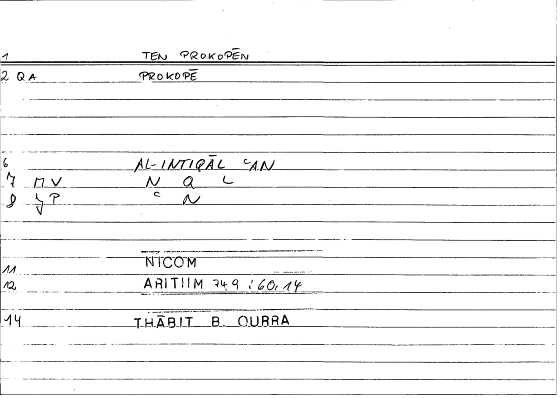 1 TEN PROKOPĒN
2 QA PROKOPĒ
6 AL-INTIQĀL ᶜAN
7 ⊓V N Q L
8 P ᶜ N
11 NICOM
12 ARITHM 74,9 : 60,14
14 THĀBIT B. QURRA